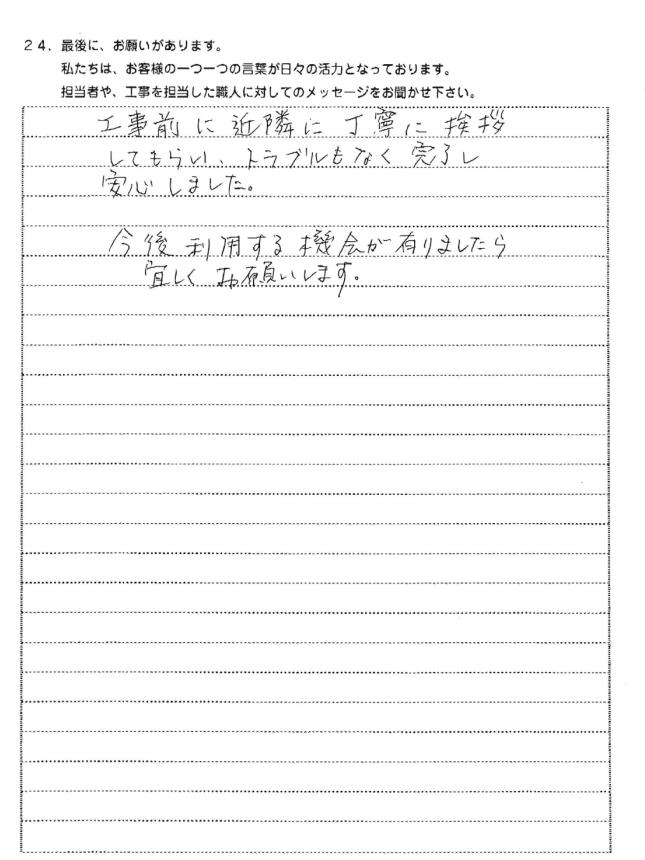 24. 最後に、お願いがあります。
私たちは、お客様の一つ一つの言葉が日々の活力となっております。
担当者や、工事を担当した職人に対してのメッセージをお聞かせ下さい。
工事前に近隣に丁寧に挨拶
してもらい、トラブルもなく完了し
安心しました。
今後利用する機会が有りましたら
宜しくお願いします。